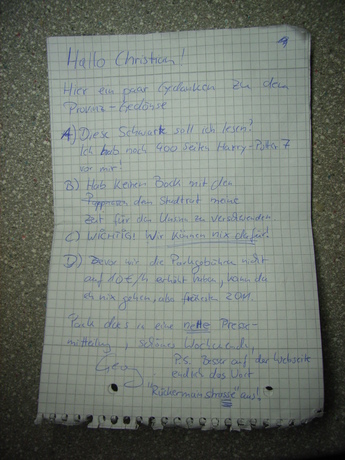 Hallo Christian!
Hier ein paar Gedanken zu dem
Provinz-Gedönse
A) Diese Schwarte soll ich lesen?
Ich hab noch 400 Seiten Harry-Potter 7
vor mir!
B) Hab keinen Bock mit den
den Stadtrat meine
Zeit für den Unsinn zu verschwenden
C) WICHTIG! Wir können nix dafür!
D) Bevor wir die Parkgebühren nicht
auf 10€/h erhöht haben, kann da
eh nix gehen, also frühsten 2011.
Pack dies in eine nette Presse-
mitteilung, schönes Wochenende,
Georg
P.S. Besser auf der Webseite
endlich das Wort
"Rückermainstrasse" aus.